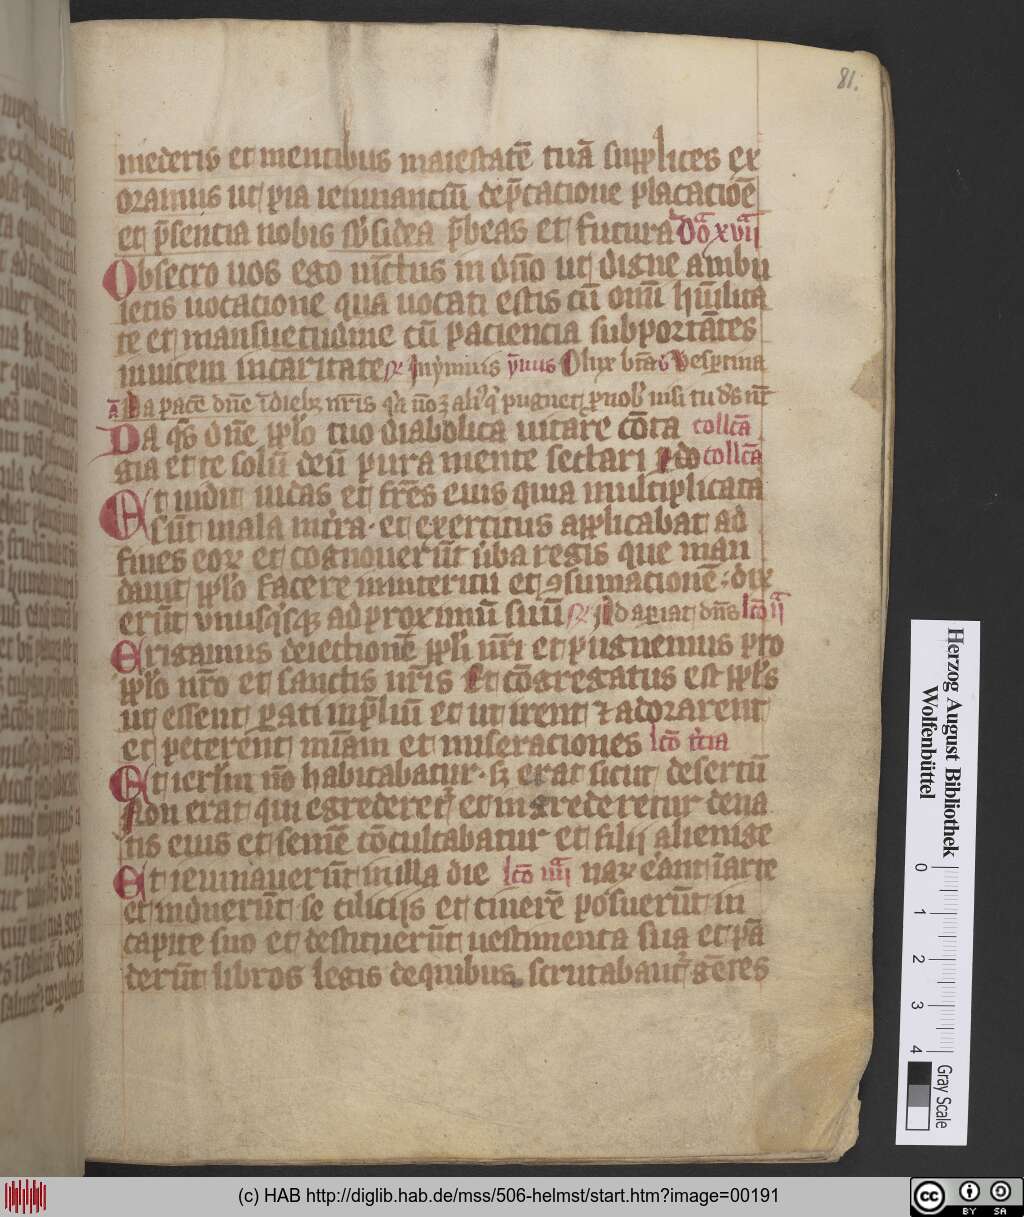 81.
mederis et mentibus maiestatē tuā supplices ex
oramus ut pia ieiunanciū dep̄catione placacioē
et p̄sencia nobis sb̓sidea p̄beas et futura Do͛ xvii͛
Obsecro uos ego uīctus in dn̄o ut digne ambu
letis uocacione qua uocati estis cū omī hūilita
te et mansuetudine cū paciencia subportātes
inuicem in caritate In ymnis ȳnus O lux bt̄a Vespertina
Da pacē dn̄e ī dieb nr̄is
Da qs̄ dn̄e pplo tuo diabolica uitare cōta collcā
gia et te solū deū pura mente sectari do collcā
Et uidit iudas et fr̄es eius quia multiplicata
sūt mala et exercitus applicabat ad
fines eoꝝ et cognouerūt uba regis que man
dauit pplo facere in interitū et ꝯsumacionē dix
erūt unusqsqꝫ ad proximū suū Ad apiat dn̄s lcō ii͛
Erigamus deiectionē ppli nr̄i et pugnemus pro
pplo nr̄o et sanctis nr̄is Et cōgregatus est ppls
ut essent pati in pliū et ut irent ⁊ adorarent
et peterent mīam et miseraciones lcō tcia
Et ierlm nō habitabatur sꝫ erat sicut desertū
Non erat qui egrederet et ingrederetur de na
tis eius et scm̄ cōculcabatur et filij alienige
Et ieiunauerūt in illa die lcō iiii͛ naꝝ eant ī arce
et induerūt se cilicijs et cinerē posuerūt in
capite suo et destituerūt uestimenta sua et pā
derūt libros legis de quibus scrutabant gēres
Herzog August Bibliothek
Wolfenbüttel
0 1 2 3 4
Gray Scale
(c) HAB http://diglib.hab.de/mss/506-helmst/start.htm?image=00191
cc BY SA